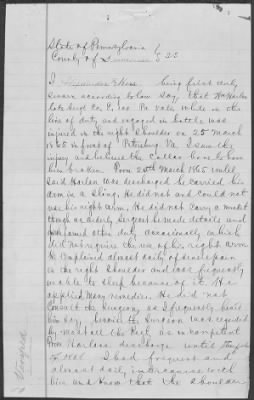 State of Pennsylvania
County of
I Alexander being first duly
sworn according to law say, that Wm Harlan
late Sergt Co. 100 Pa Vols while in the
line of duty and engaged in battle was
injured in the right shoulder on 25 March
1865 in front of Petersburg Va. I saw the
injury and believe the Collar bone to have
been broken. From 25th March 1865 until
said Harlan was discharged he carried his
arm in a sling. He did not and could not
use his right arm. He did not carry a musket
though as orderly Sergeant he made details and
performed other duty occasionally which
did not require the use of his right arm
He complained almost daily of severe pain
in the right shoulder and was frequently
unable to sleep because of it. He
applied many remedies. He did not
consult the Surgeon as I frequently heard
him say, because the Surgeon was regarded
by most all the Regt. as incompetent
From Harlans discharge until
of 1881 I had frequent and
almost daily intercourse with
him and know that the shoulder